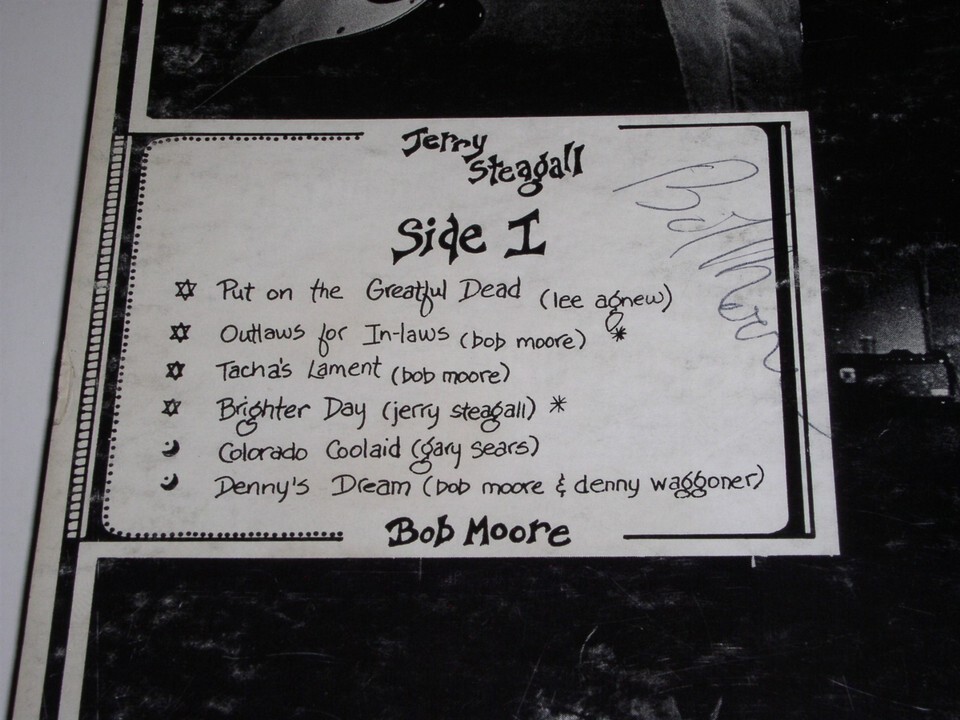 Jerry
Steagall
Side I
Put on the Greatful Dead (lee agnew)
Outlaws for In-laws (bob moore) *
Tacha's Lament (bob moore)
Brighter Day (jerry steagall) *
Colorado Coolaid (gary sears)
Denny's Dream (bob moore & denny waggoner)
Bob Moore